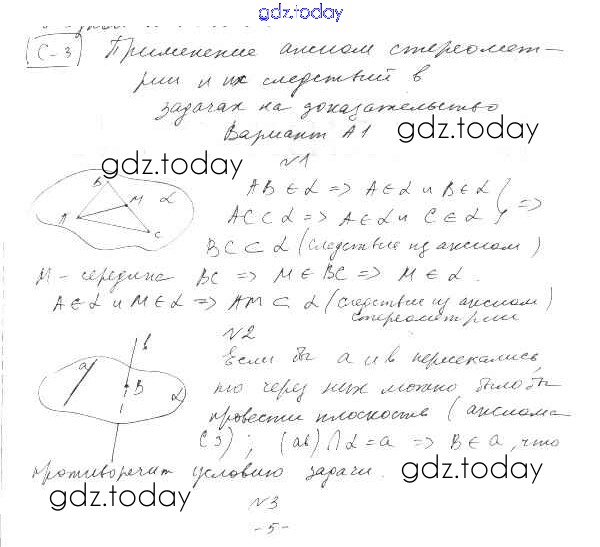 gdz.today
С-3 Применение аксиом стереомет-
рии и их следствий в
задачах на доказательство
Вариант А1 gdz.today
gdz.today
№1
B M α A C
AB ∈ α => A ∈ α и B ∈ α } =>
AC ⊂ α => A ∈ α и C ∈ α
BC ⊂ α (следствие из аксиом)
M - середина BC => M ∈ BC => M ∈ α.
A ∈ α и M ∈ α => AM ⊂ α (следствие из аксиом)
стереометрии
№2
a b B α
Если бы a и b пересекались,
то через них можно было бы
провести плоскость (аксиома
C3); (ab) ∩ α = a => B ∈ a, что
противоречит условию задачи. gdz.today
gdz.today
№3
-5-